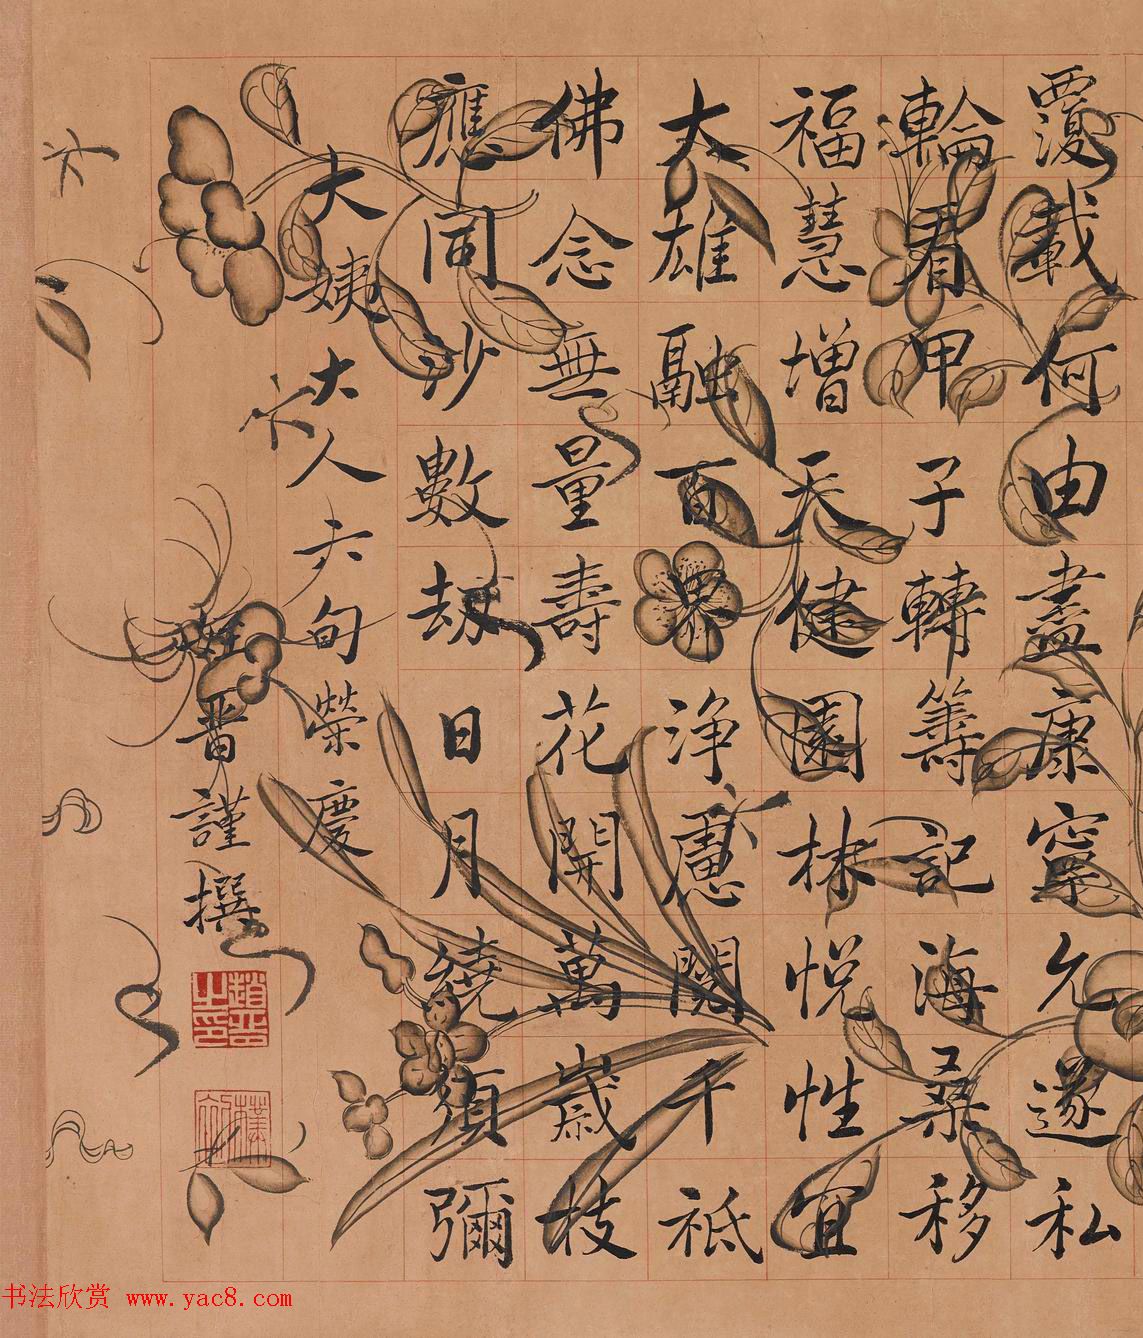 覆載何由盡康寧允遂私
輪看甲子轉籌記海桑移
福慧增天健園林悅性宜
大雄融百界淨慮關千祇
佛念無量壽花開萬歲枝
應同沙數劫日月繞須彌
大姨大人六旬榮慶
晋謹撰
趙晋之印
书法欣赏 www.yac8.com